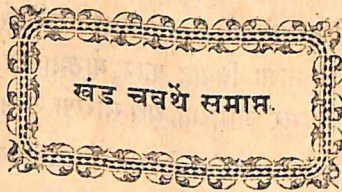 खंड चवथें समाप्त.